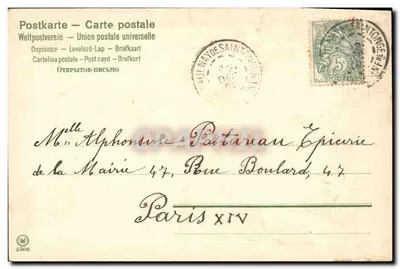 Postkarte — Carte postale
Weltpostverein — Union postale universelle
Dopisnice — Levelező-Lap — Briefkaart
Cartolina postale — Post card — Brefkort
ОТКРЫТОЕ-ПИСЬМО
AULNAY DE SAINTONGE
DEC
5
Mlle Alphonsine Patureau Epicerie
de la Mairie 47, Rue Boulard, 47
Paris XIV
5506